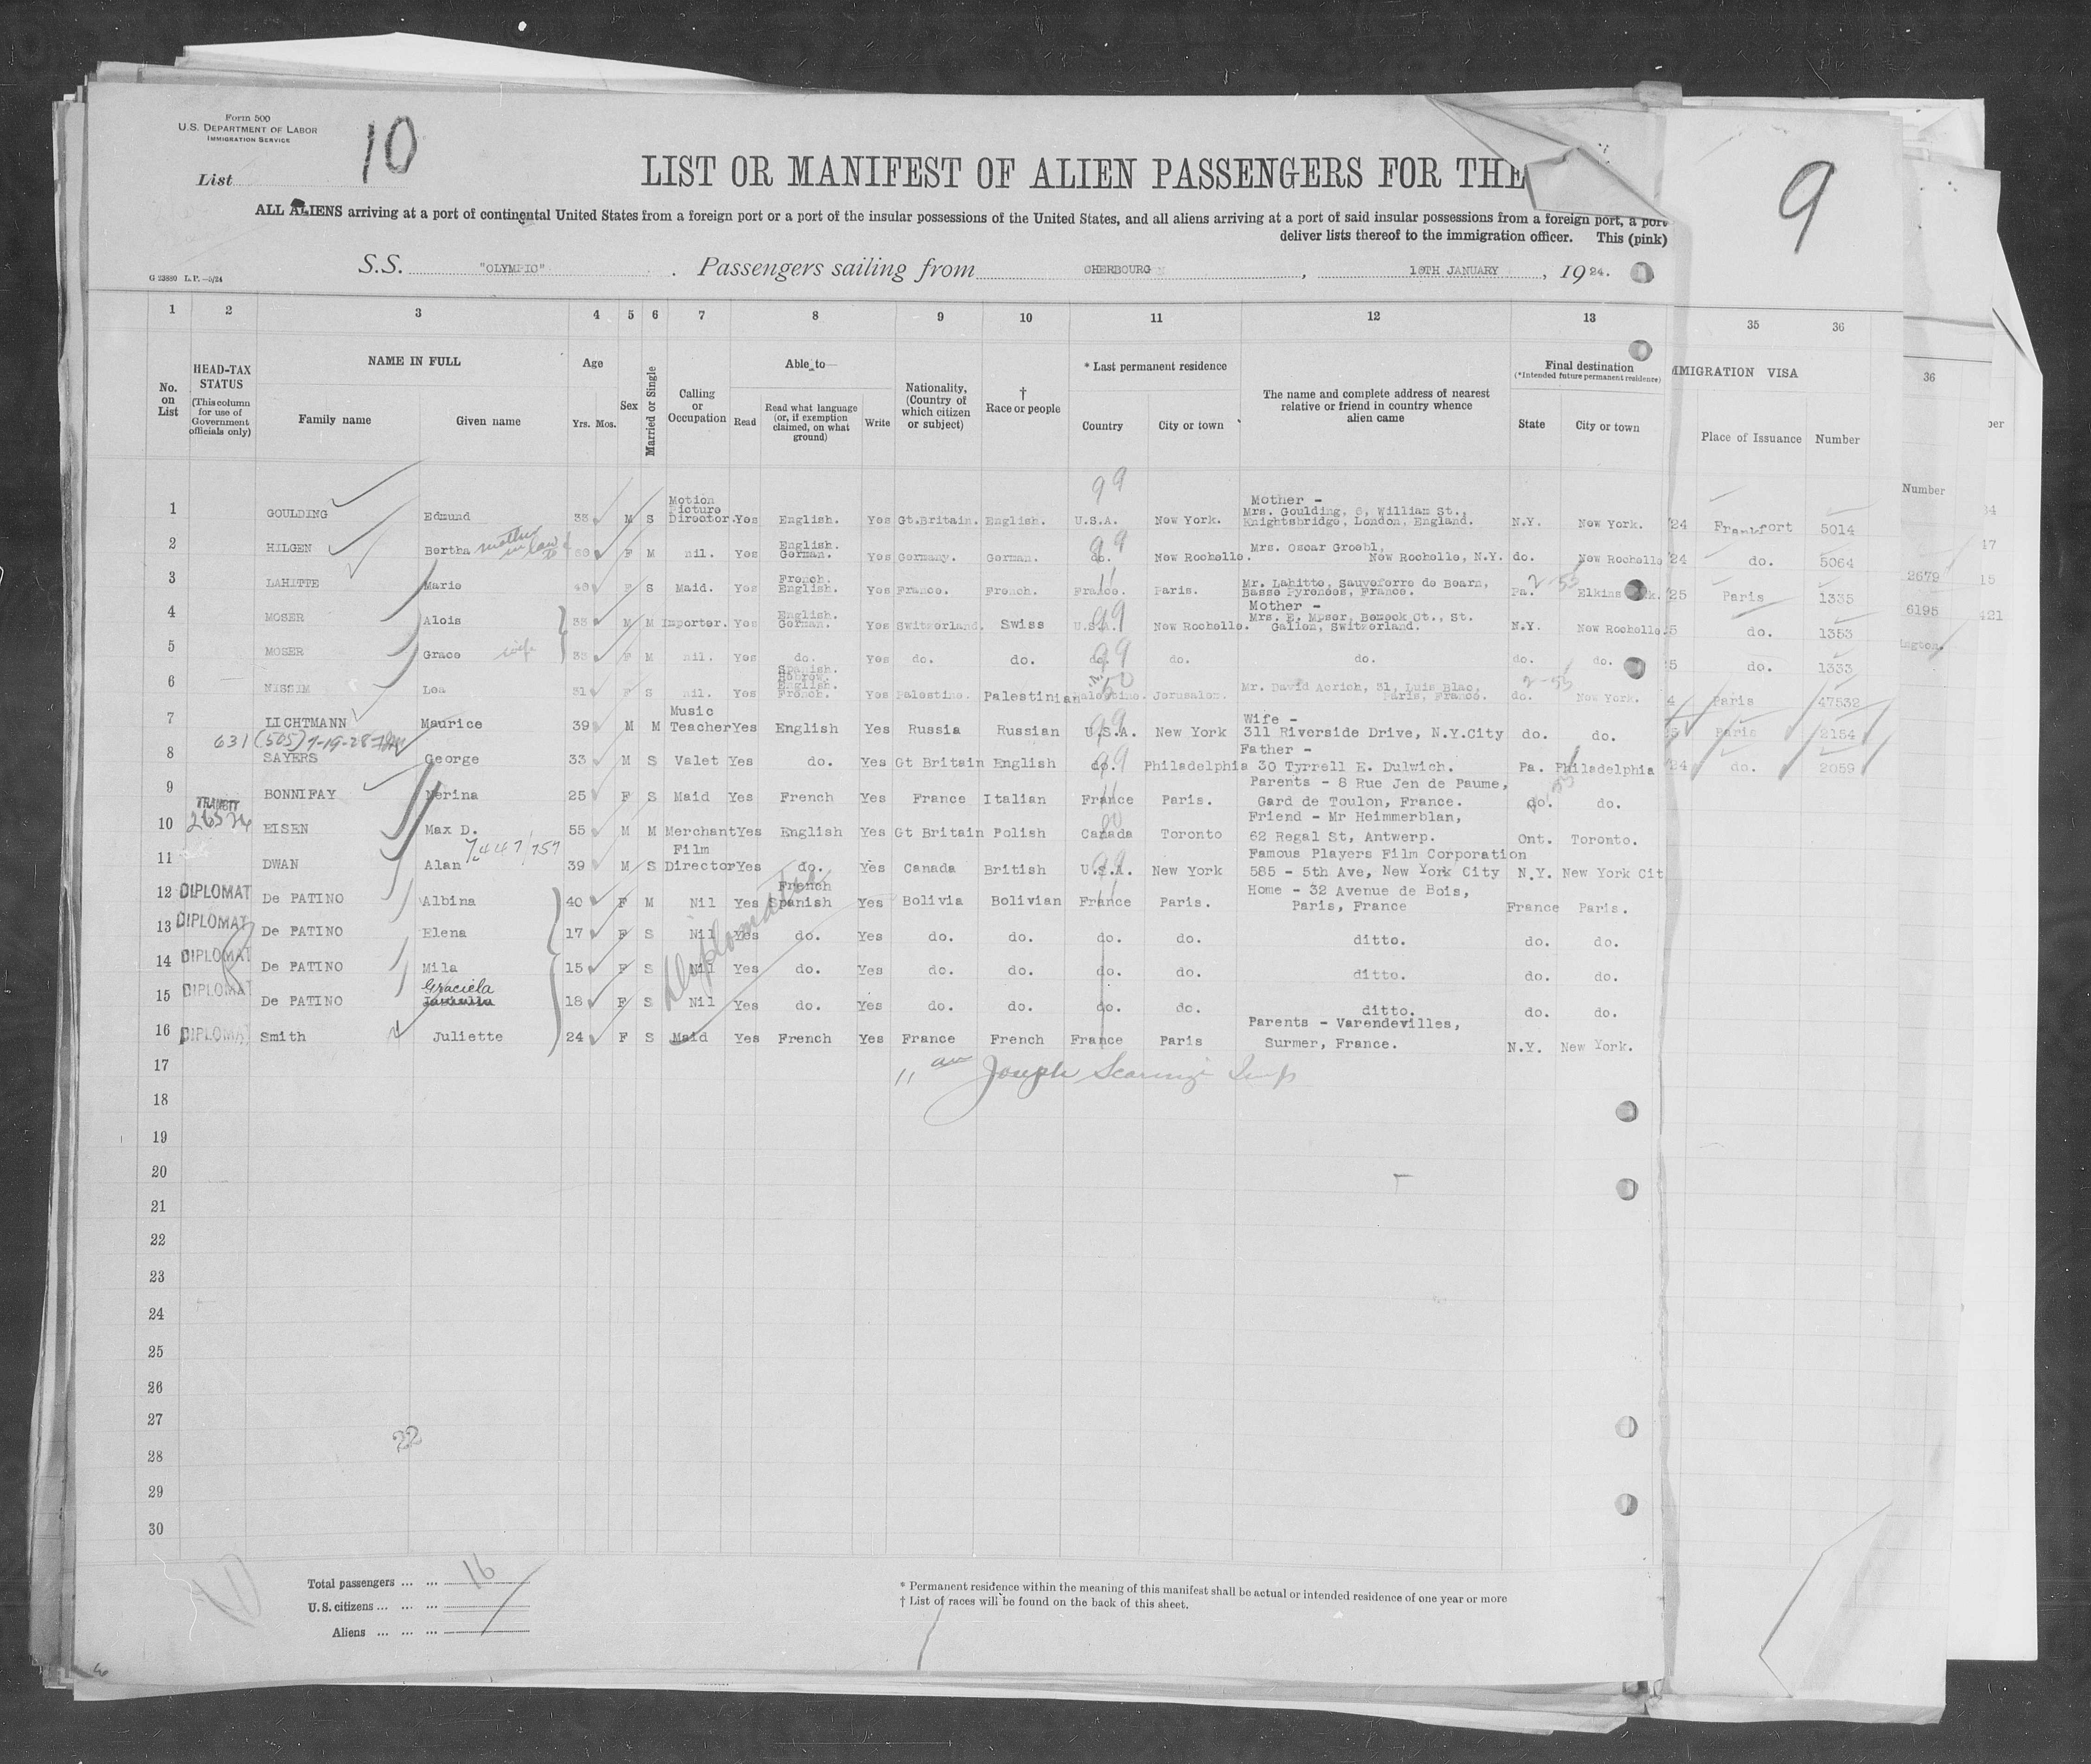 Form 500
U.S. DEPARTMENT OF LABOR
IMMIGRATION SERVICE
List 10
9
LIST OR MANIFEST OF ALIEN PASSENGERS FOR THE
ALL ALIENS arriving at a port of continental United States from a foreign port or a port of the insular possessions of the United States, and all aliens arriving at a port of said insular possessions from a foreign port, a port
deliver lists thereof to the immigration officer. This (pink)
S.S. "OLYMPIC" . Passengers sailing from CHERBOURG , JANUARY , 1924.
G 23880 L.P.—5/24
1 2 3 4 5 6 7 8 9 10 11 12 13 35 36
No. on List
HEAD-TAX STATUS (This column for use of Government officials only)
NAME IN FULL
Family name Given name
Age
Yrs. Mos.
Sex
Married or Single
Calling or Occupation
Able to—
Read
Read what language (or, if exemption claimed, on what ground)
Write
Nationality, (Country of which citizen or subject)
† Race or people
* Last permanent residence
Country City or town
The name and complete address of nearest relative or friend in country whence alien came
Final destination
(*Intended future permanent residence)
State City or town
MMIGRATION VISA
Place of Issuance Number
36
Number
1 GOULDING Edmund 33 M S Motion Picture Director. Yes English. Yes Gt.Britain. English. U.S.A. New York. Mother - Mrs. Goulding, 6, William St., Knightsbridge, London, England. N.Y. New York. '24 Frankfort 5014
2 HILGEN Bertha mother in law 60 F M nil. Yes English. German. Yes Germany. German. do. New Rochelle. Mrs. Oscar Groebl, New Rochelle, N.Y. do. New Rochelle '24 do. 5064
3 LAHITTE Marie F S Maid. Yes French. English. Yes France. French. France. Paris. Mr. Lahitte, Sauveterre de Bearn, Basse Pyrenees, France. Pa. Elkins '25 Paris 1335
2679
4 MOSER Alois M M Importer. Yes English. German. Yes Switzerland. Swiss U.S.A. New Rochelle. Mother - Mrs. E. Moser, St. Gallen, Switzerland. N.Y. New Rochelle. 5 do. 1353
6195
5 MOSER Grace wife 33 F M nil. Yes do. Yes do. do. do. do. do. do. do. 5 do. 1333
6 NISSIM Lea 31 F S nil. Yes Spanish. Hebrew. English. French. Yes Palestine. Palestinian Palestine. Jerusalem. Mr. David Acrich, 31, Luis Blac, Paris, France. do. New York. 4 Paris 47532
7 LICHTMANN Maurice 39 M M Music Teacher Yes English Yes Russia Russian U.S.A. New York Wife - 311 Riverside Drive, N.Y.City do. do. 5 Paris 2154
631 (505) 7-19-28
8 SAYERS George 33 M S Valet Yes do. Yes Gt Britain English do. Philadelphia Father - 30 Tyrrell E. Dulwich. Pa. Philadelphia '24 do. 2059
9 BONNIFAY Nerina 25 F S Maid Yes French Yes France Italian France Paris. Parents - 8 Rue Jen de Paume, Gard de Toulon, France. do. do.
10 TRANSIT EISEN Max D. 55 M M Merchant Yes English Yes Gt Britain Polish Canada Toronto Friend - Mr Heimmerblan, 62 Regal St, Antwerp. Ont. Toronto.
11 DWAN Alan 39 M S Film Director Yes do. Yes Canada British U.S.A. New York Famous Players Film Corporation 585 - 5th Ave, New York City N.Y. New York Cit
12 DIPLOMAT De PATINO Albina 40 F M Nil Yes French Spanish Yes Bolivia Bolivian France Paris. Home - 32 Avenue de Bois, Paris, France France Paris.
13 DIPLOMAT De PATINO Elena 17 F S Nil Yes do. Yes do. do. do. do. ditto. do. do.
14 DIPLOMAT De PATINO Mila 15 F S Nil Yes do. Yes do. do. do. do. ditto. do. do.
15 DIPLOMAT De PATINO Graciela 18 F S Nil Yes do. Yes do. do. do. do. ditto. do. do.
16 DIPLOMAT Smith Juliette 24 F S Maid Yes French Yes France French France Paris Parents - Varendevilles, Surmer, France. N.Y. New York.
17
18
19
20
21
22
23
24
25
26
27
22
28
29
30
Total passengers ... ... 16
U.S. citizens ... ... ...
Aliens ... ... ...
* Permanent residence within the meaning of this manifest shall be actual or intended residence of one year or more
† List of races will be found on the back of this sheet.